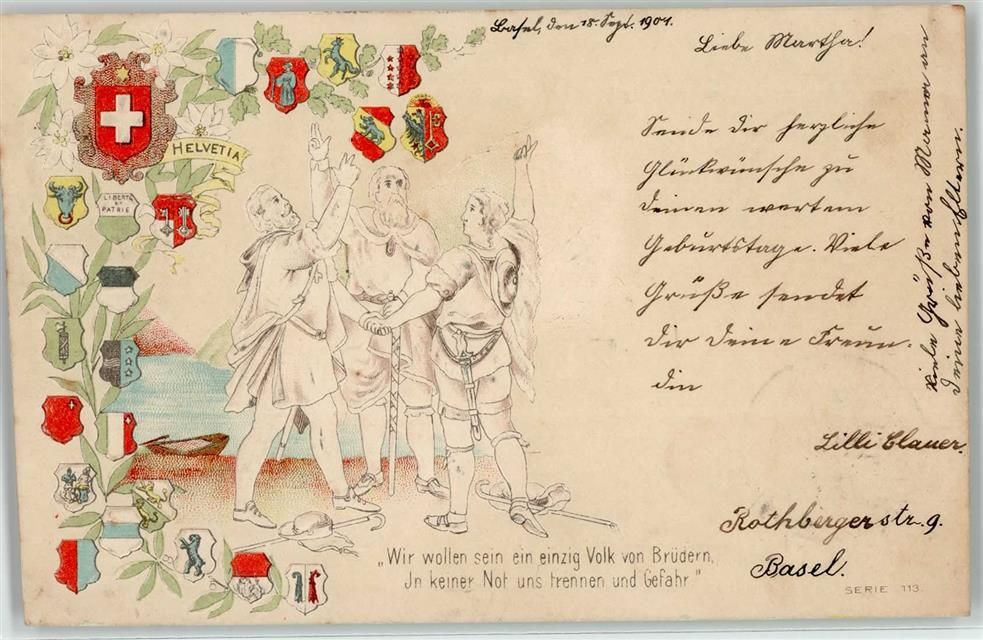 Basel, den 18. Sept. 1901.
Liebe Martha!
Sende dir herzliche
Glückwünsche zu
deinem wertem
Geburtstage. Viele
Grüße sendet
dir deine Freun-
din
Lilli Clauer.
Rothbergerstr. 9.
Basel.
Viele Grüße von Mama an
deine lieben Eltern.
HELVETIA
LIBERTE
ET
PATRIE
„Wir wollen sein ein einzig Volk von Brüdern,
Jn keiner Not uns trennen und Gefahr"
SERIE 113.